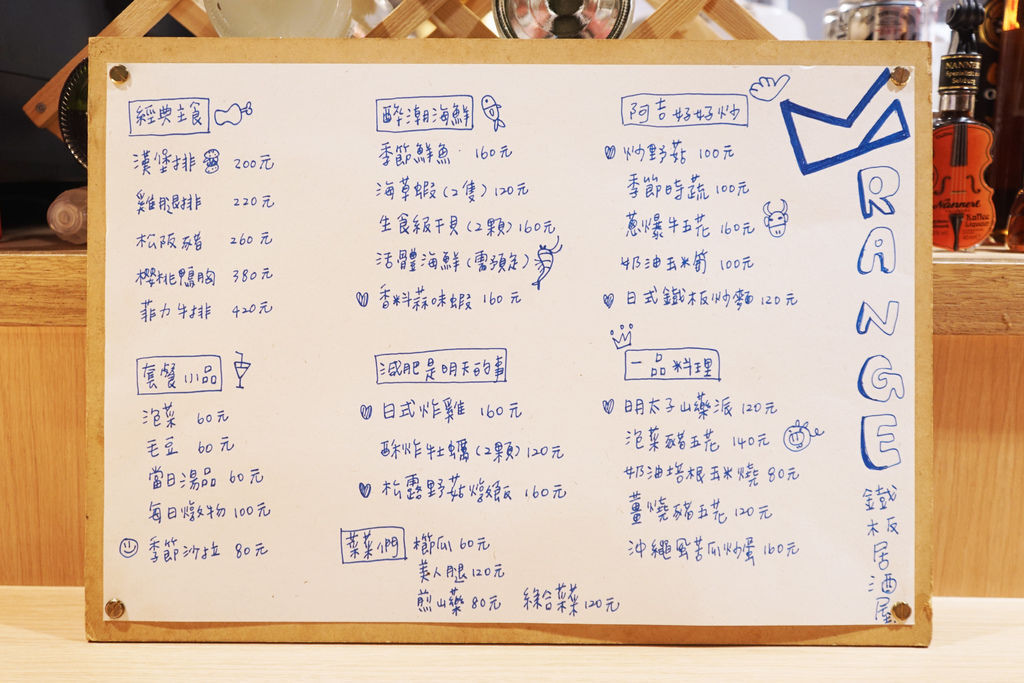 經典主食
漢堡排 200元
雞腿排 220元
松阪豬 260元
櫻桃鴨胸 380元
菲力牛排 420元
套餐小品
泡菜 60元
毛豆 60元
當日湯品 60元
每日燉物 100元
季節沙拉 80元
醉潮海鮮
季節鮮魚 160元
海草蝦(2隻)120元
生食級干貝(2顆)160元
活體海鮮(需預定)
香料蒜味蝦 160元
減肥是明天的事
日式炸雞 160元
酥炸牡蠣(2顆)120元
松露野菇燉飯 160元
菜菜們
櫛瓜 60元
美人腿 120元
煎山藥 80元
綜合菜菜 120元
阿吉好好炒
炒野菇 100元
季節時蔬 100元
蔥爆牛五花 160元
奶油玉米筍 100元
日式鐵板炒麵 120元
一品料理
明太子山藥派 120元
泡菜豬五花 140元
奶油培根玉米燒 80元
薑燒豬五花 120元
沖繩風苦瓜炒蛋 160元
RANGE
鐵板居酒屋
NANNERL
Nannerl
Kaffee